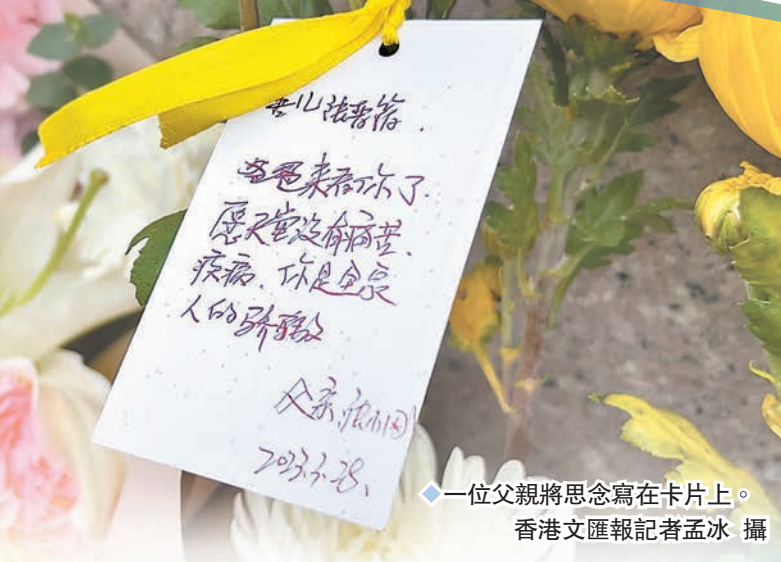 吾儿张
爸爸来看你了.
愿天堂没有痛苦、
疾病. 你是全家
人的骄傲
父亲:
2023.3.28.
一位父親將思念寫在卡片上。
香港文匯報記者孟冰 攝